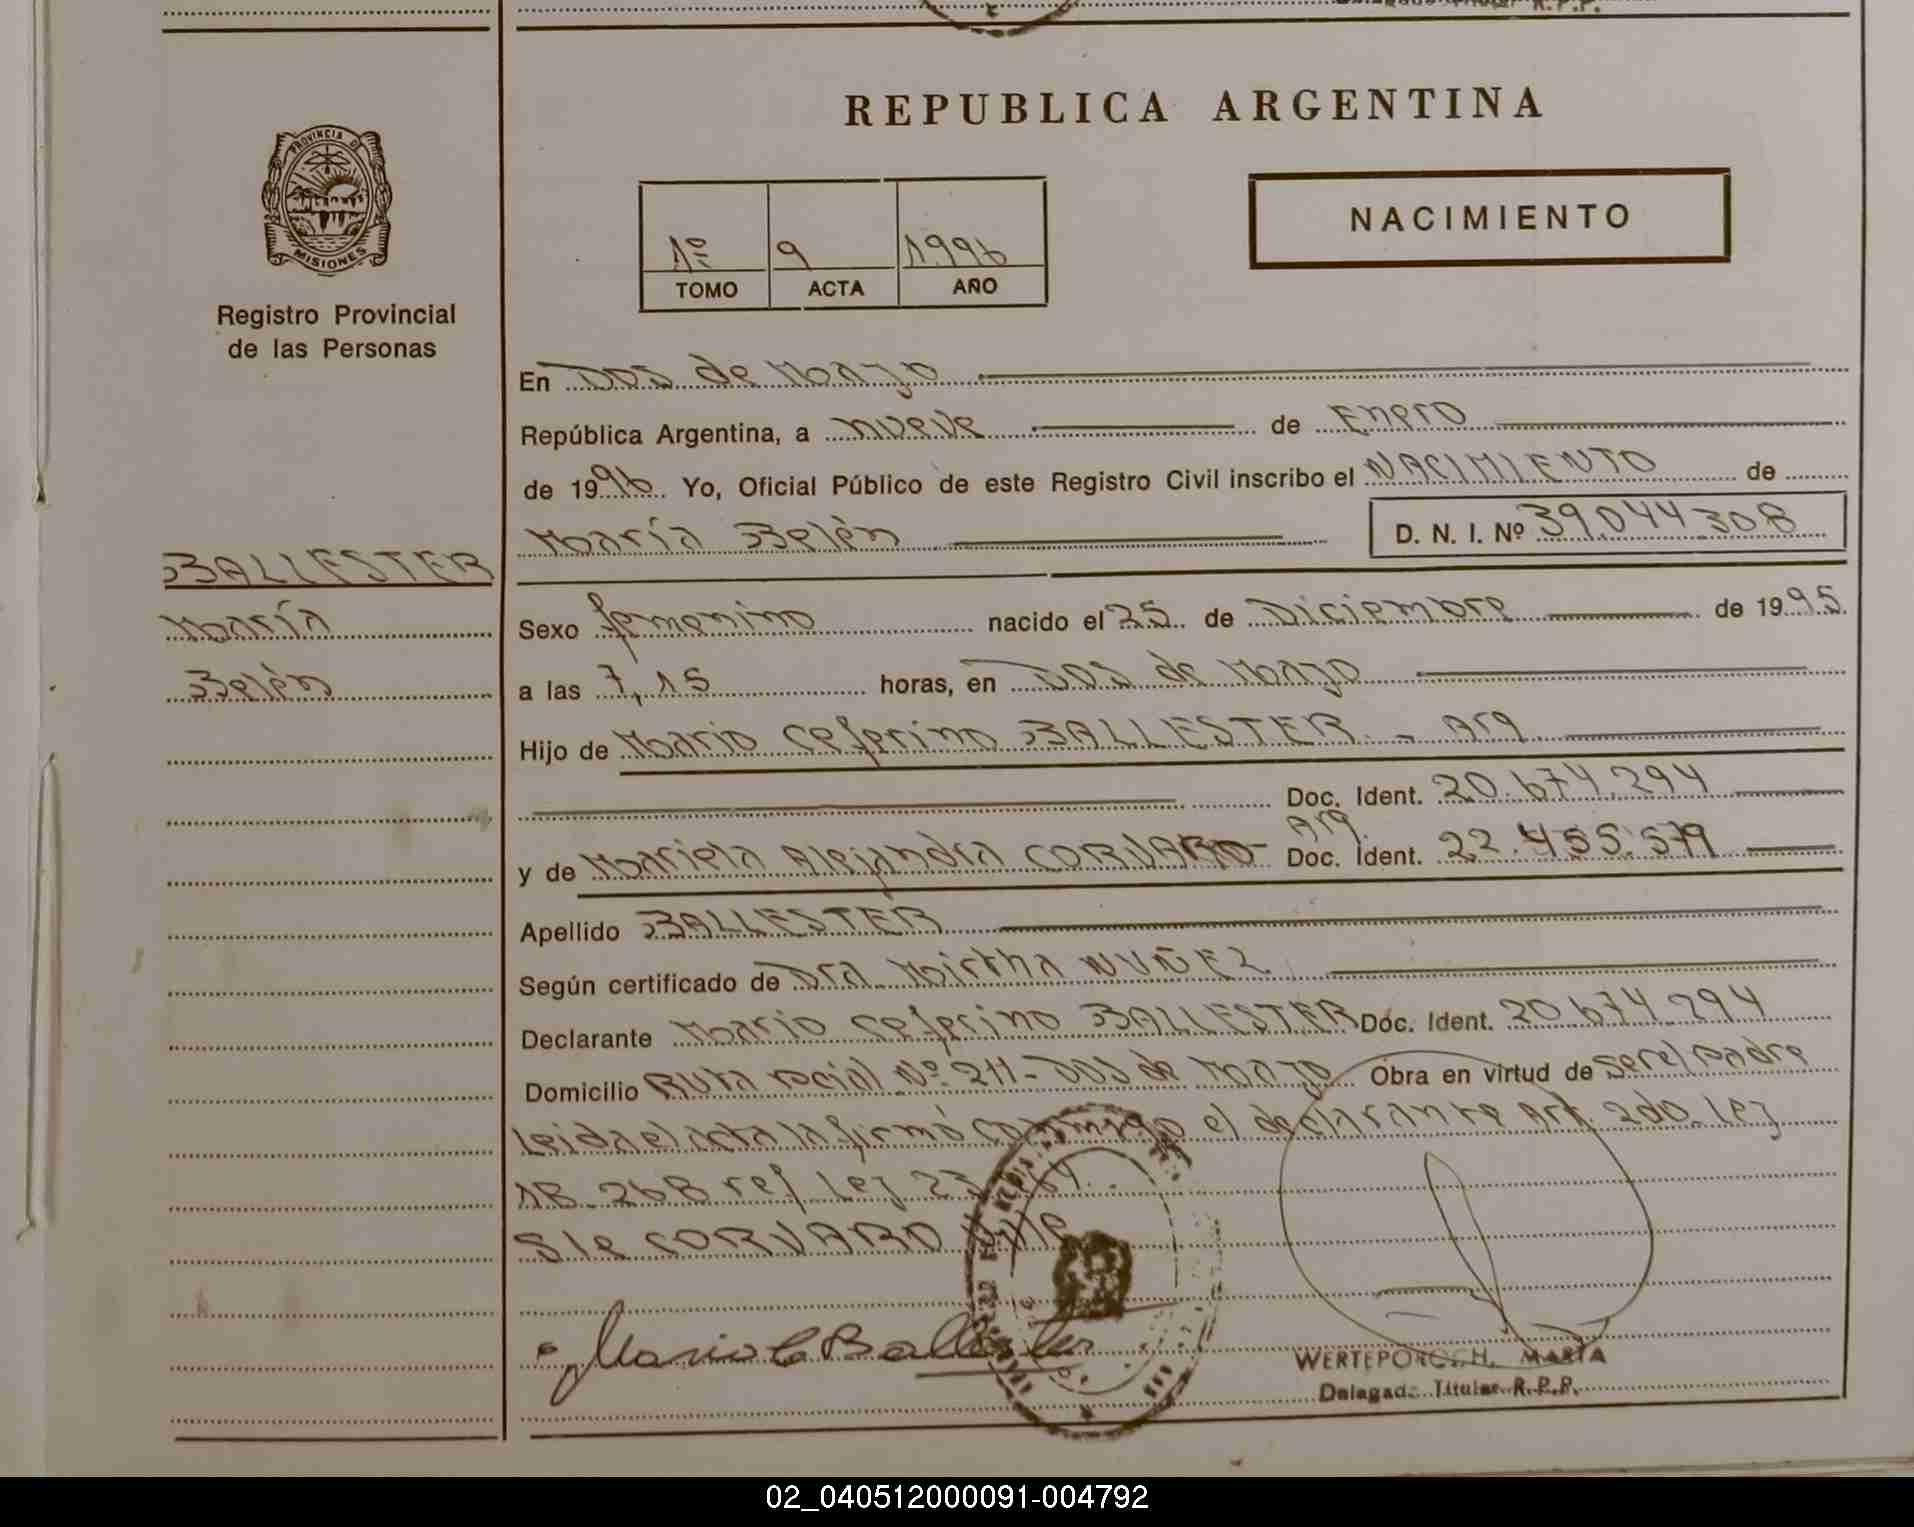 REPUBLICA ARGENTINA
PROVINCIA D
MISIONES
Registro Provincial
de las Personas
1º 9 1996
TOMO ACTA AÑO
NACIMIENTO
En Dos de Mayo
República Argentina, a nueve de Enero
de 1996 Yo, Oficial Público de este Registro Civil inscribo el NACIMIENTO de
María Belén D. N. I. Nº 39.044.308
BALLESTER
María
Belén
Sexo femenino nacido el 25 de Diciembre de 1995
a las 7,15 horas, en Dos de Mayo
Hijo de Mario Ceferino BALLESTER - Arg
Doc. Ident. 20.674.294
Arg.
y de Mariela Alejandra CORVARO Doc. Ident. 22.455.579
Apellido BALLESTER
Según certificado de Dra Mirtha NUÑEZ
Declarante Mario Ceferino BALLESTER Doc. Ident. 20.674.294
Domicilio Ruta Nº 211-Dos de Mayo Obra en virtud de ser el padre
Leida el acta la firmó conmigo el declarante Art. 2do. Ley
18.268 ref Ley 23
S/e CORVARO Vale
Mario C Ballester
MARIA
Delegada Titular R.P.P.
02_040512000091-004792